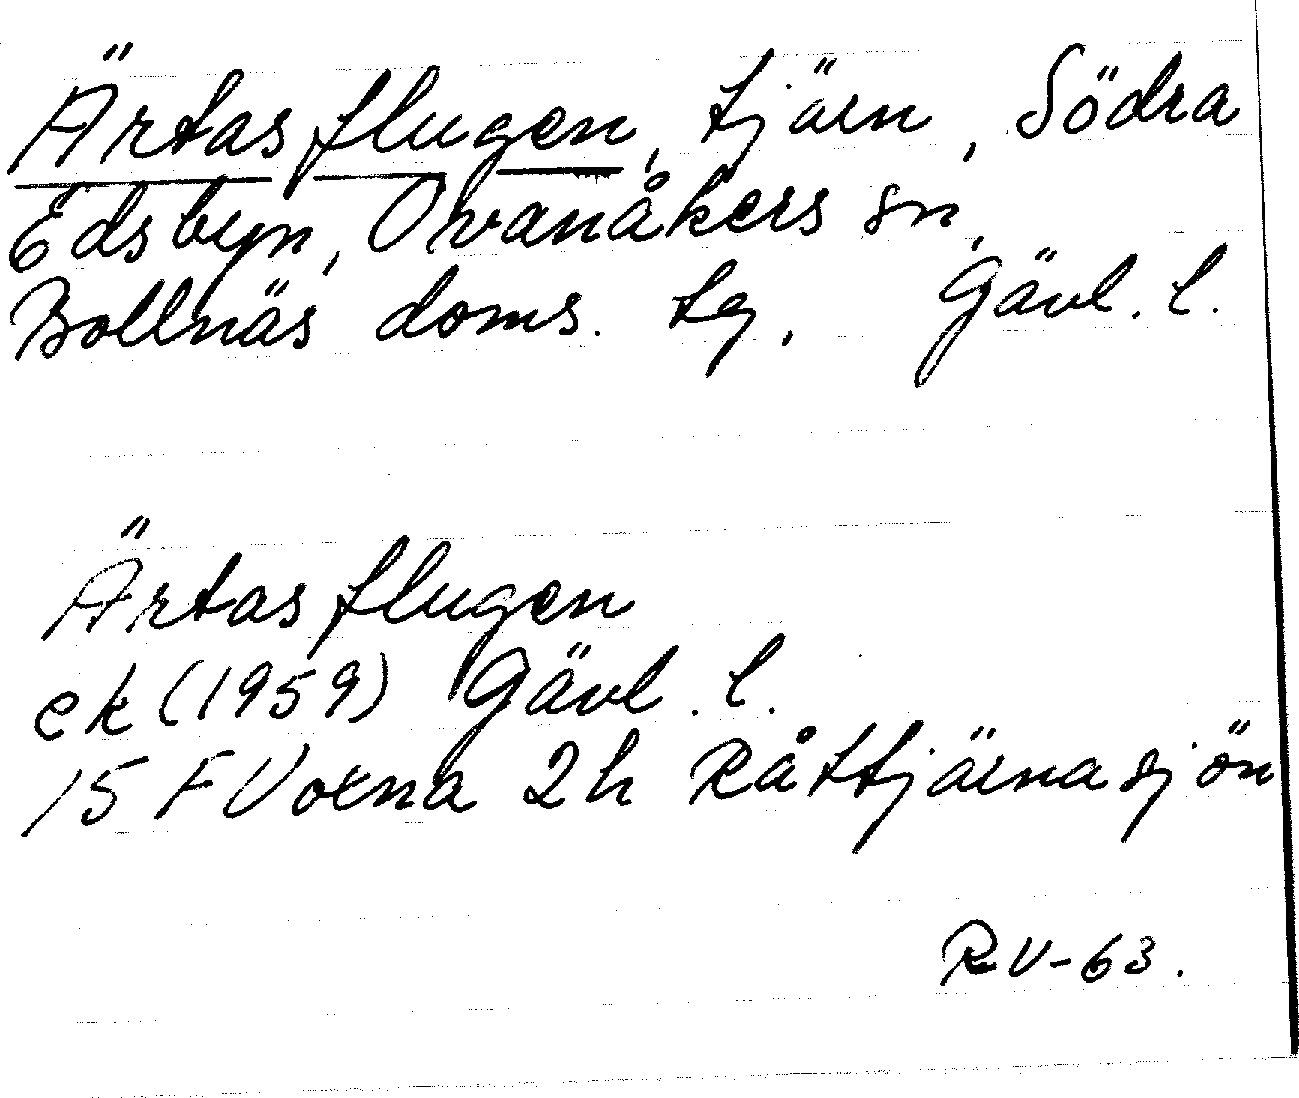 Ärtasflugen, tjärn, Södra
Edsbyn, Ovanåkers sn,
Bollnäs doms. tg, Gävl. l.
Ärtasflugen
ek (1959) Gävl. l.
15 F Voxna 2h Råttjärnasjön
RV-63.